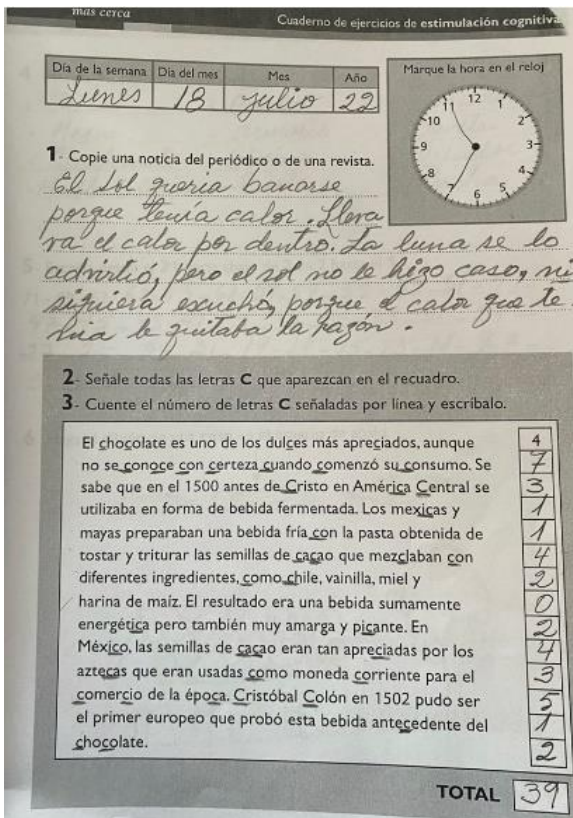 más cerca
Cuaderno de ejercicios de estimulación cognitiva
Día de la semana Día del mes Mes Año
Lunes 18 julio 22
Marque la hora en el reloj
12 1 2 3 4 5 6 7 8 9 10 11
1- Copie una noticia del periódico o de una revista.
El sol queria banarse
porque tenía calor. Lleva
ra el calor por dentro. La luna se lo
advirtió, pero el sol no le hizo caso, ni
siquiera escuchó, porque el calor que te
nia le quitaba la razón.
2- Señale todas las letras C que aparezcan en el recuadro.
3- Cuente el número de letras C señaladas por línea y escríbalo.
El chocolate es uno de los dulces más apreciados, aunque 4
no se conoce con certeza cuando comenzó su consumo. Se 7
sabe que en el 1500 antes de Cristo en América Central se 3
utilizaba en forma de bebida fermentada. Los mexicas y 1
mayas preparaban una bebida fría con la pasta obtenida de 1
tostar y triturar las semillas de cacao que mezclaban con 4
diferentes ingredientes, como chile, vainilla, miel y 2
harina de maíz. El resultado era una bebida sumamente 0
energética pero también muy amarga y picante. En 2
México, las semillas de cacao eran tan apreciadas por los 4
aztecas que eran usadas como moneda corriente para el 3
comercio de la época. Cristóbal Colón en 1502 pudo ser 5
el primer europeo que probó esta bebida antecedente del 1
chocolate. 2
TOTAL 39